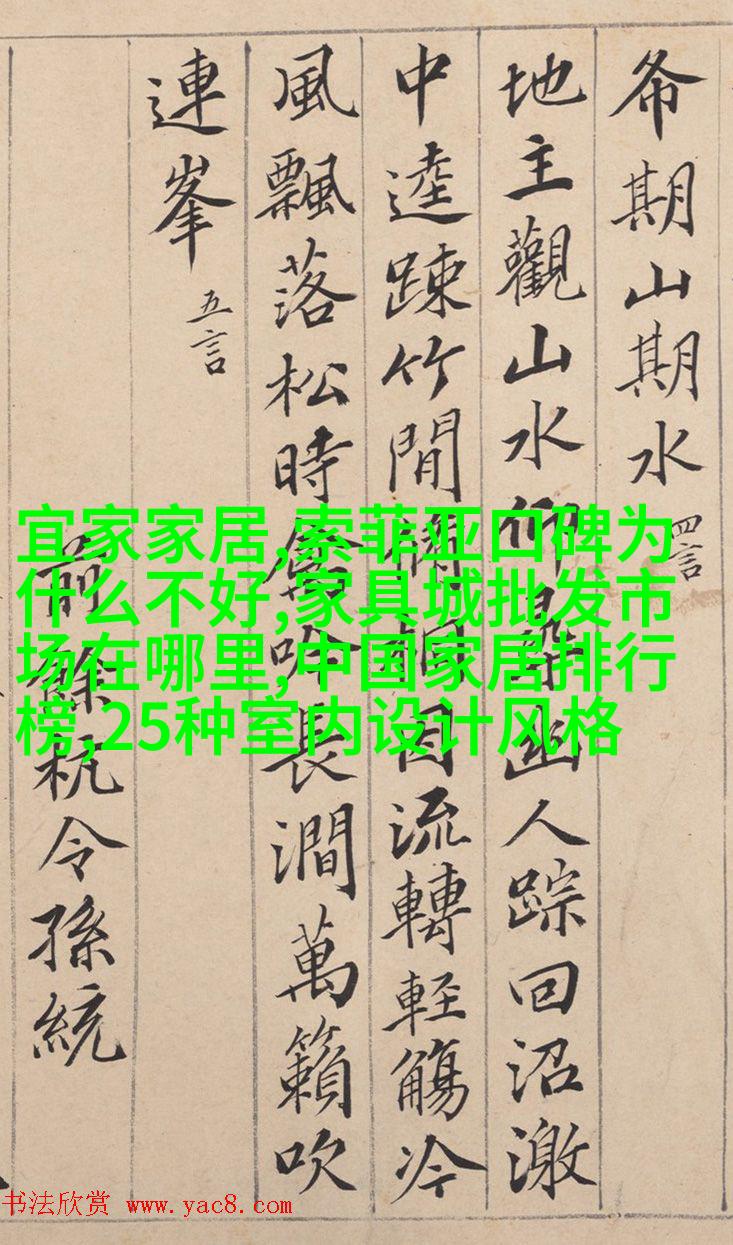 希期山期水 四言
地主觀山水仰尋幽人踪回沼激
中逵踈竹間脩桐因流轉輕觴冷
風飄落松時禽吟長澗萬籟吹
連峯 五言
前餘杭令孫統
宜家家居,索菲亚口碑为
什么不好,家具城批发市
场在哪里,中国家居排行
榜,25种室内设计风格
书法欣赏 www.yac8.com